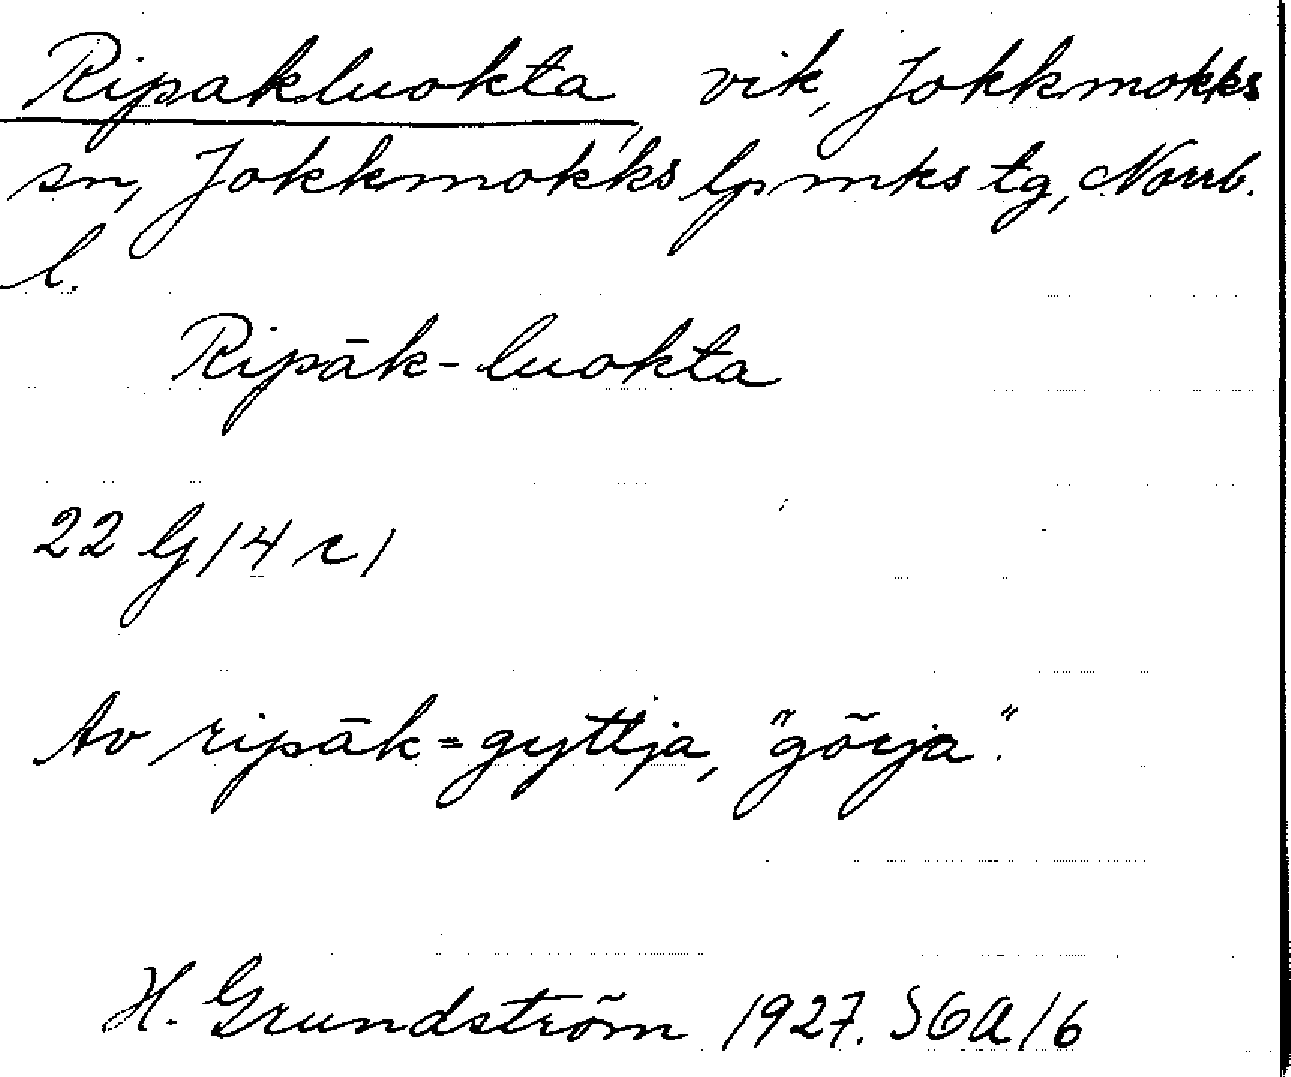 Ripakluokta, vik, Jokkmokks
sn, Jokkmokks lpmks tg, Norrb.
l.
Ripāk-luokta
22 G/4 c/
Av ripāk = gyttja, "görja".
H. Grundström 1927. SGA/6